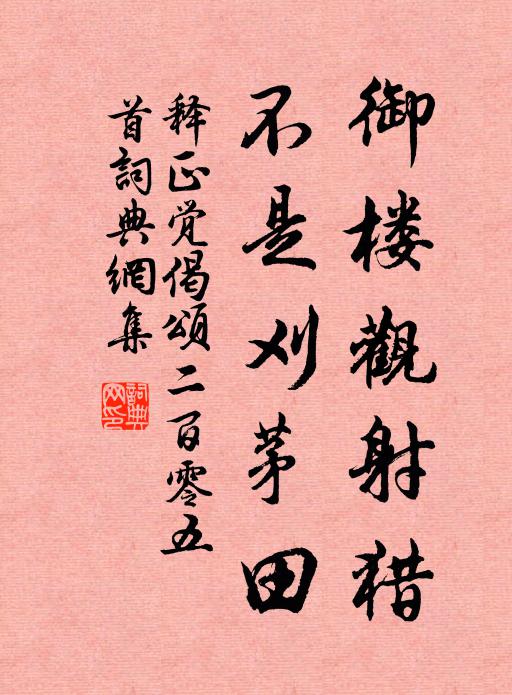 御楼觀射猎
不是刈茅田
释正觉偈頌二百零五
首詞典網集
詞典網印